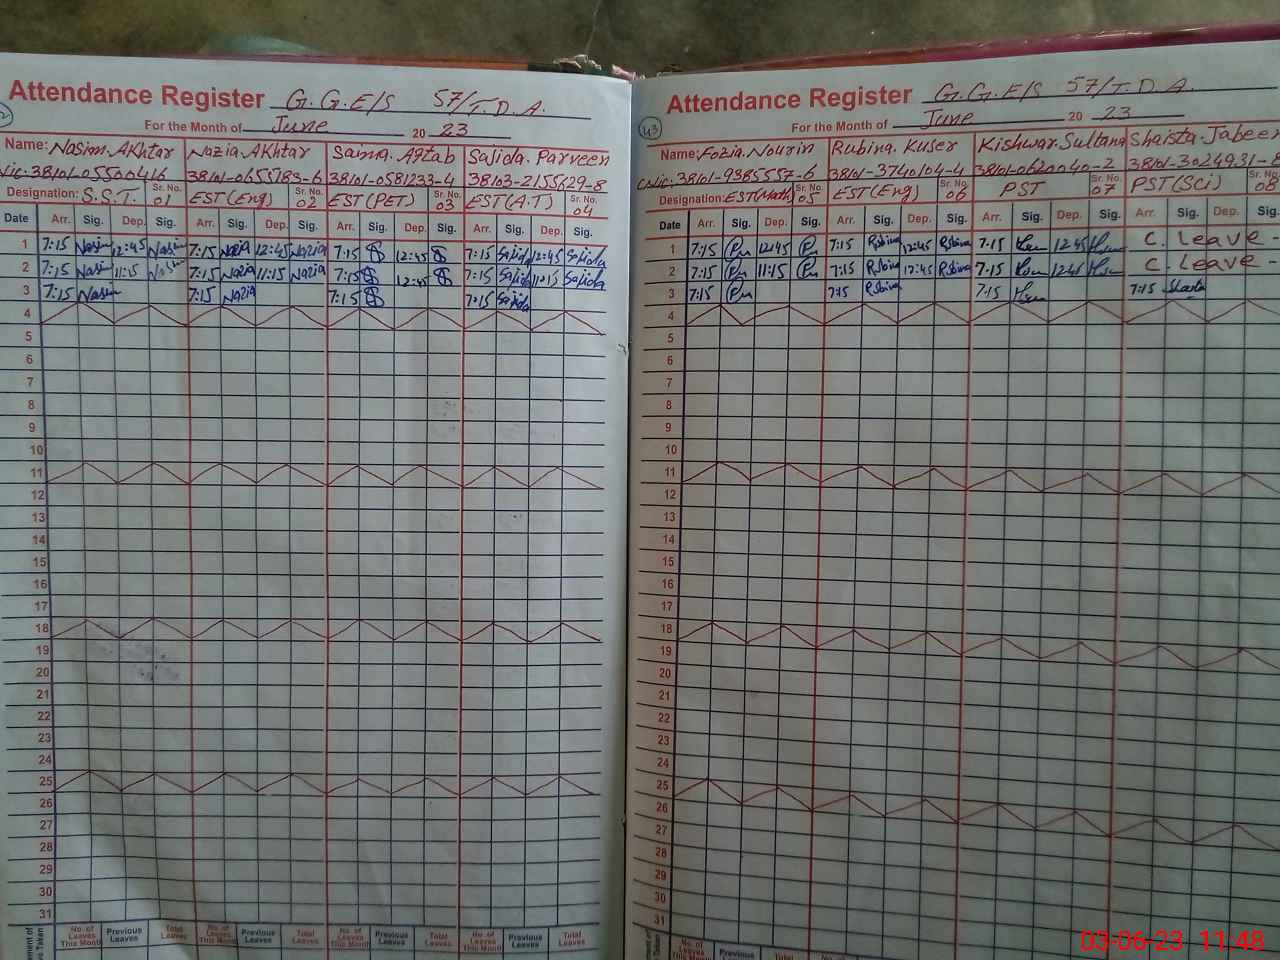 Attendance Register G.G.E/S 57/T.D.A.
For the Month of June 20 23
Name: Nasim.Akhtar Nazia.Akhtar Saima.Aftab Sajida.Parveen
38101-0550041-6 38101-0655783-6 38101-0581233-4 38103-2155629-8
Designation: S.S.T. Sr. No. 01 EST(Eng) Sr. No. 02 EST(PET) Sr. No. 03 EST(A.T) Sr. No. 04
Date Arr. Sig. Dep. Sig. Arr. Sig. Dep. Sig. Arr. Sig. Dep. Sig. Arr. Sig. Dep. Sig.
1 7:15 Nasim 12:45 Nasim 7:15 Nazia 12:45 Nazia 7:15 12:45 7:15 Sajida 12:45 Sajida
2 7:15 Nasim 11:15 Nasim 7:15 Nazia 11:15 Nazia 7:15 12:45 7:15 Sajida 11:15 Sajida
3 7:15 Nasim 7:15 Nazia 7:15 7:15 Sajida
4
5
6
7
8
9
10
11
12
13
14
15
16
17
18
19
20
21
22
23
24
25
26
27
28
29
30
31
No. of Leaves This Month Previous Leaves Total Leaves No. of Leaves This Month Previous Leaves Total Leaves No. of Leaves This Month Previous Leaves Total Leaves No. of Leaves This Month Previous Leaves Total Leaves
43
Attendance Register G.G.E/S 57/T.D.A.
For the Month of June 20 23
Name: Fozia.Nourin Rubina.Kuser Kishwar.Sultana Shaista.Jabeen
CNic: 38101-9385557-6 38101-3740104-4 38101-0620040-2 38101-3024931-8
Designation: EST(Math) Sr. No. 05 EST(Eng) Sr. No. 06 PST Sr. No. 07 PST(Sci) Sr. No. 08
Date Arr. Sig. Dep. Sig. Arr. Sig. Dep. Sig. Arr. Sig. Dep. Sig. Arr. Sig. Dep. Sig.
1 7:15 12:45 7:15 Rubina 12:45 Rubina 7:15 12:45 C. Leave -
2 7:15 11:15 7:15 Rubina 12:45 Rubina 7:15 C. Leave -
3 7:15 7:15 Rubina 7:15 7:15 Shaista
4
5
6
7
8
9
10
11
12
13
14
15
16
17
18
19
20
21
22
23
24
25
26
27
28
29
30
31
No. of Leaves This Month Previous Leaves Total Leaves No. of Leaves This Month Previous Leaves
03-06-23 11:48